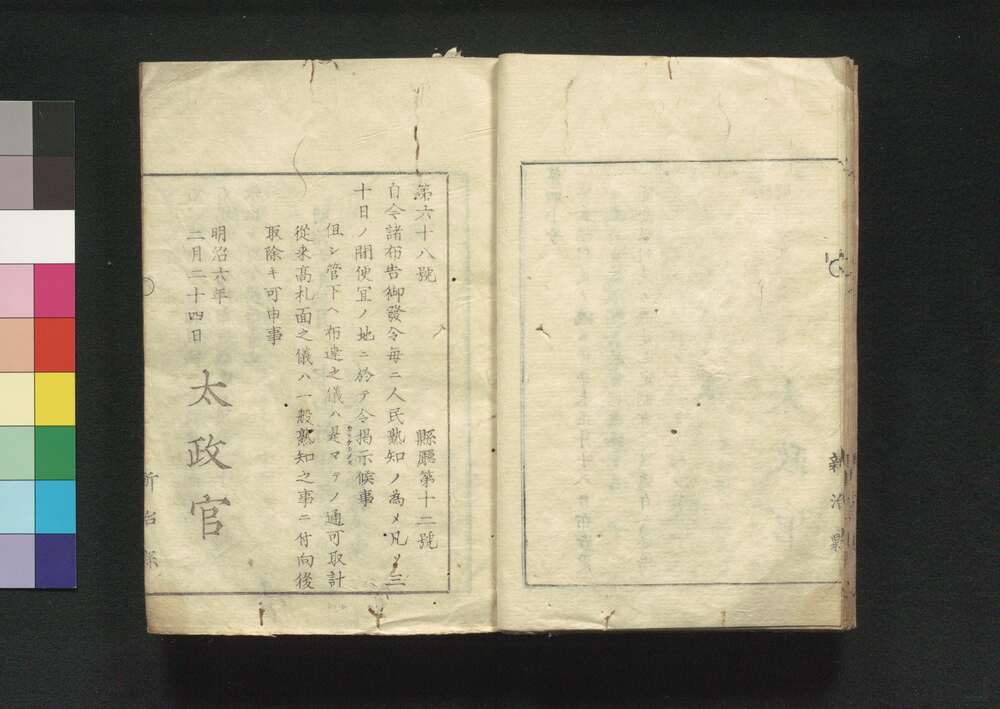 新治縣
第六十八號
縣廳第十二號
自今諸布告御發令毎ニ人民熟知ノ為メ凡ソ三
十日ノ間便宜ノ地ニ於テ令掲示候事
但シ管下ヘ布達之儀ハ是マテノ通可取計
從来髙札面之儀ハ一般熟知之事ニ付向後
取除キ可申事
明治六年
二月二十四日
太政官
新治縣